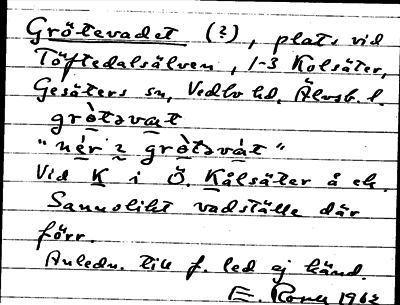 Grötevadet (?), plats vid
Töftedalsälven, 1-3 Kolsäter,
Gesäters sn, Vedbo hd, Älvsb. l.
grò̱təva̱t
"nẹ́r i grò̱təvá̱t"
Vid K i Ö. Kålsäter å ek.
Sannolikt vadställe där
förr.
Anledn. till f. led ej känd.
E. 1962